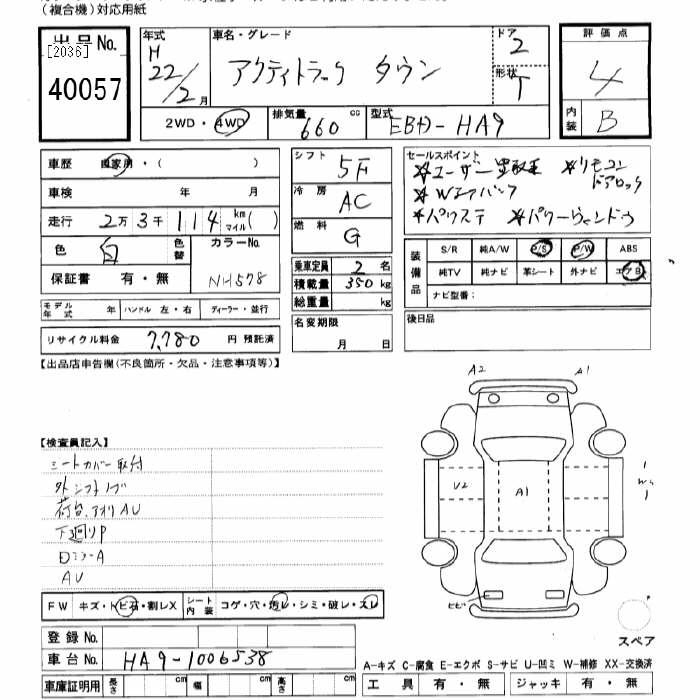 (複合機)対応用紙
出品No.
[2036]
40057
年式
H
22/2月
車名・グレード
アクティトラック タウン
ドア
2
形状
T
評価点
4
内装
B
2WD・4WD
排気量
660 cc
型式
EBD-HA9
車歴 自家用・( )
車検 年 月
走行 2万3千114 km マイル( )
色 白 色替
カラーNo.
NH578
保証書 有・無
モデル年式 年 ハンドル 左・右 ディーラー・並行
リサイクル料金 7,780 円 預託済
シフト 5F
冷房 AC
燃料 G
乗車定員 2 名
積載量 350 kg
総重量 kg
名変期限
月 日
セールスポイント
※ユーザー買取車 ※リモコンドアロック
※Wエアバック
※パワステ ※パワーウィンドウ
装備品
S/R 純A/W P/S P/W ABS
純TV 純ナビ 革シート 外ナビ エアB
ナビ型番:
後日品
【出品店申告欄(不良箇所・欠品・注意事項等)】
A2
A1
U2
A1
W1
【検査員記入】
シートカバー取付
外シフトノブ
荷台、アオリAU
下廻りP
DミラーA
AU
FW キズ・トビ石・割レX
シート内装 コゲ・穴・汚レ・シミ・破レ・スレ
ヒビ
スペア
登録No.
車台No. HA9-1006538
車庫証明用 長さ cm 幅 cm 高さ cm
A-キズ C-腐食 E-エクボ S-サビ U-凹ミ W-補修 XX-交換済
工具 有・無 ジャッキ 有・無